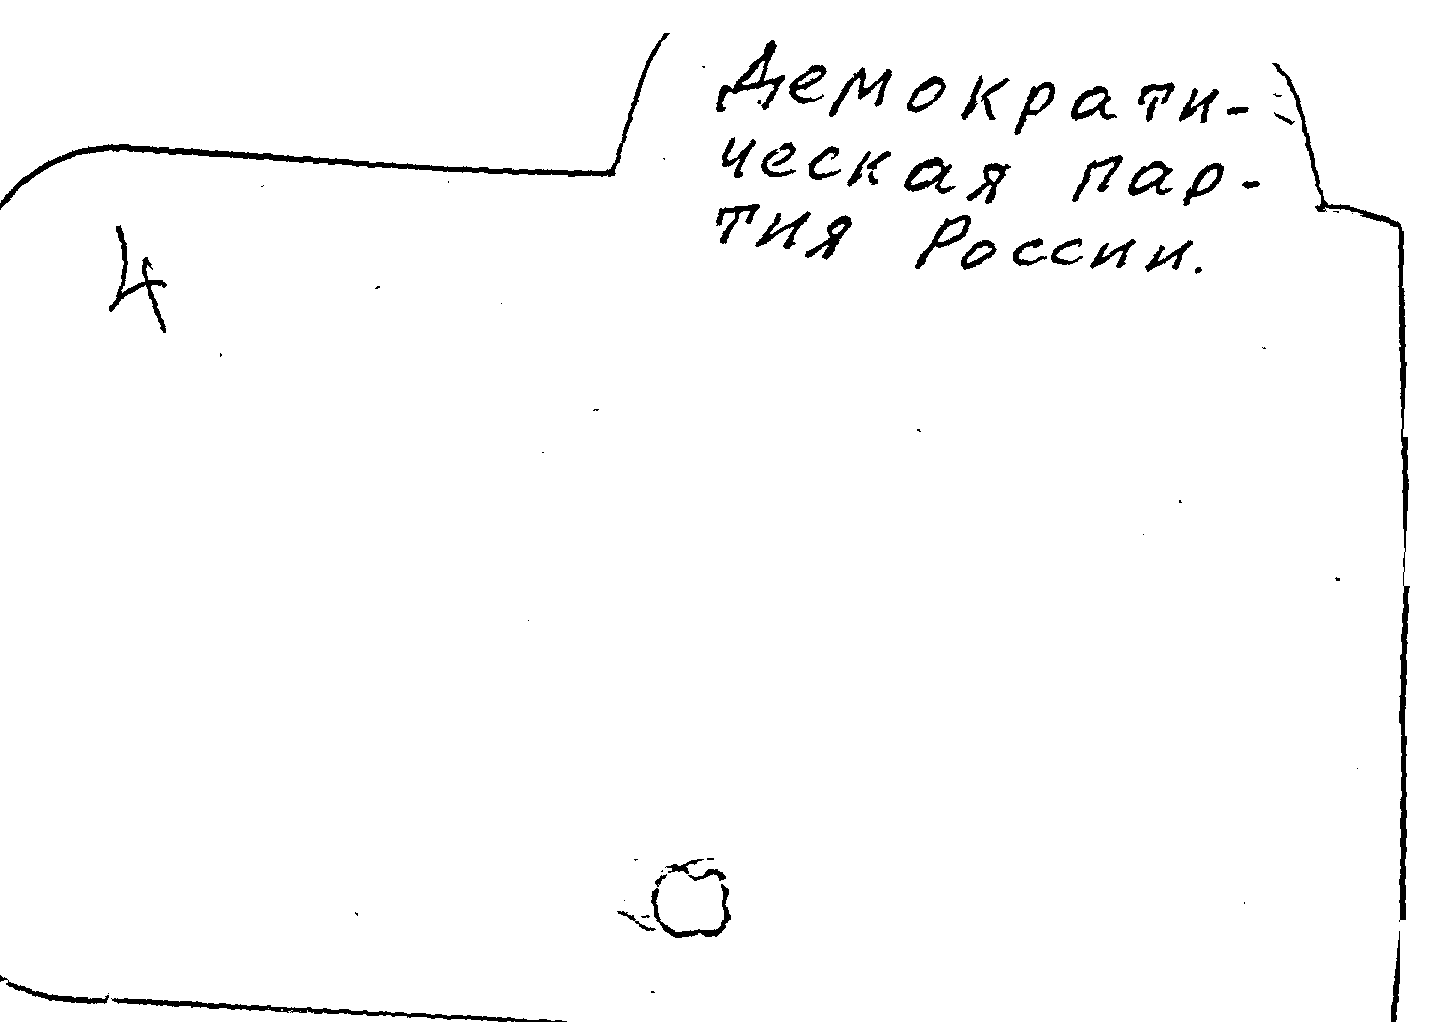 Демократи-
ческая пар-
тия России.
4